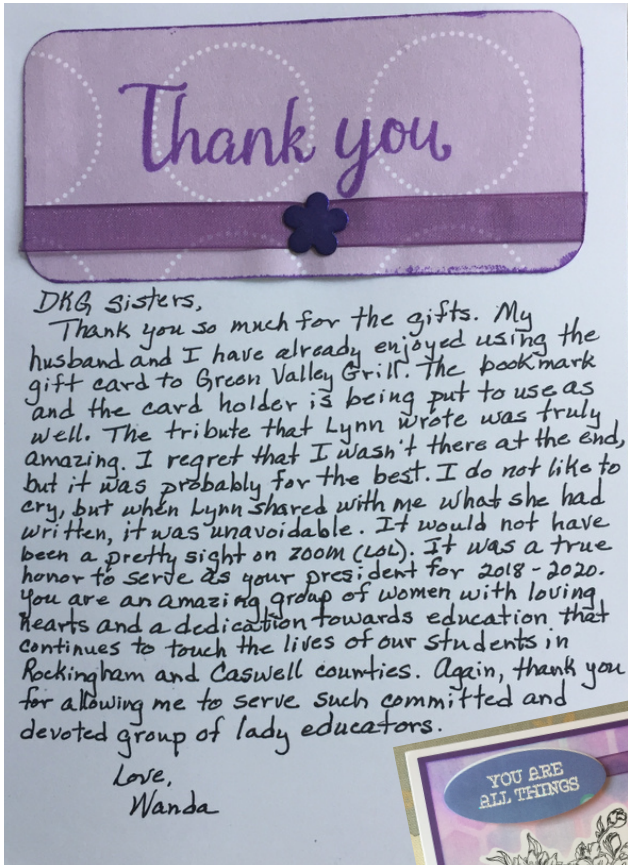 Thank you
DKG Sisters,
Thank you so much for the gifts. My
husband and I have already enjoyed using the
gift card to Green Valley Grill. The bookmark
and the card holder is being put to use as
well. The tribute that Lynn wrote was truly
amazing. I regret that I wasn't there at the end,
but it was probably for the best. I do not like to
cry, but when Lynn shared with me what she had
written, it was unavoidable. It would not have
been a pretty sight on ZOOM (LOL). It was a true
honor to serve as your president for 2018-2020.
You are an amazing group of women with loving
hearts and a dedication towards education that
continues to touch the lives of our students in
Rockingham and Caswell counties. Again, thank you
for allowing me to serve such committed and
devoted group of lady educators.
Love,
Wanda
YOU ARE
ALL THINGS